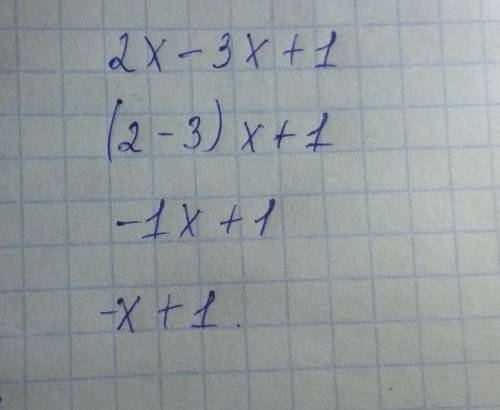 2x - 3x + 1
(2 - 3) x + 1
-1x + 1
-x + 1.